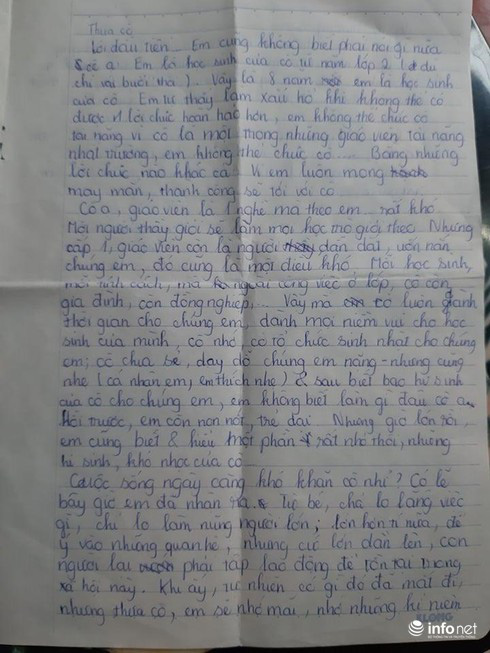 Thưa cô
Lời đầu tiên... Em cũng không biết phải nói gì nữa
cô ạ. Em là học sinh của cô từ năm lớp 2 (dù
chỉ vài buổi thôi). Vậy là 8 năm em là học sinh
của cô. Em tự thấy làm xấu hổ khi không thể có
được 1 lời chúc hoàn hảo hơn, em không thể chúc cô
tài năng vì cô là một trong những giáo viên tài năng
nhất trường, em không thể chúc cô... Bằng những
lời chúc nào khác cả. Vì em luôn mong
may mắn, thành công sẽ tới với cô
Cô ạ, giáo viên là 1 nghề mà theo em rất khó
Mỗi người thầy giỏi sẽ làm mọi học trò giỏi theo. Những
cấp 1, giáo viên còn là người dẫn dắt, uốn nắn
chúng em, đó cũng là một điều khó. Mỗi học sinh,
mỗi tính cách, mà ngoài công việc ở lớp, cô còn
gia đình, còn đồng nghiệp... Vậy mà cô luôn dành
thời gian cho chúng em, dành mọi niềm vui cho học
sinh của mình, cô nhớ cô tổ chức sinh nhật cho chúng
em; cô chia sẻ, dạy dỗ chúng em nặng - nhưng cũng
nhẹ (cá nhân em, em thích nhẹ) & sau biết bao hi sinh
của cô cho chúng em, em không biết làm gì đâu cô ạ.
Hồi trước, em còn non nớt, trẻ dại. Nhưng giờ lớn rồi,
em cũng biết & hiểu một phần rất nhỏ thôi, những
hi sinh, khó nhọc của cô.
Cuộc sống ngày càng khó khăn cô nhỉ? Có lẽ
bây giờ em đã nhận ra. Lúc bé, chả lo lắng việc
gì, chỉ lo làm nũng người lớn; lớn hơn tí nữa, để
ý vào những quan hệ, nhưng cứ lớn dần lên, con
người lại phải tập lao động để tồn tại trong
xã hội này. Khi ấy, tự nhiên có gì đó đã mất đi,
nhưng thưa cô, em sẽ nhớ mãi, nhớ những kỉ niệm
KLONG
infonet